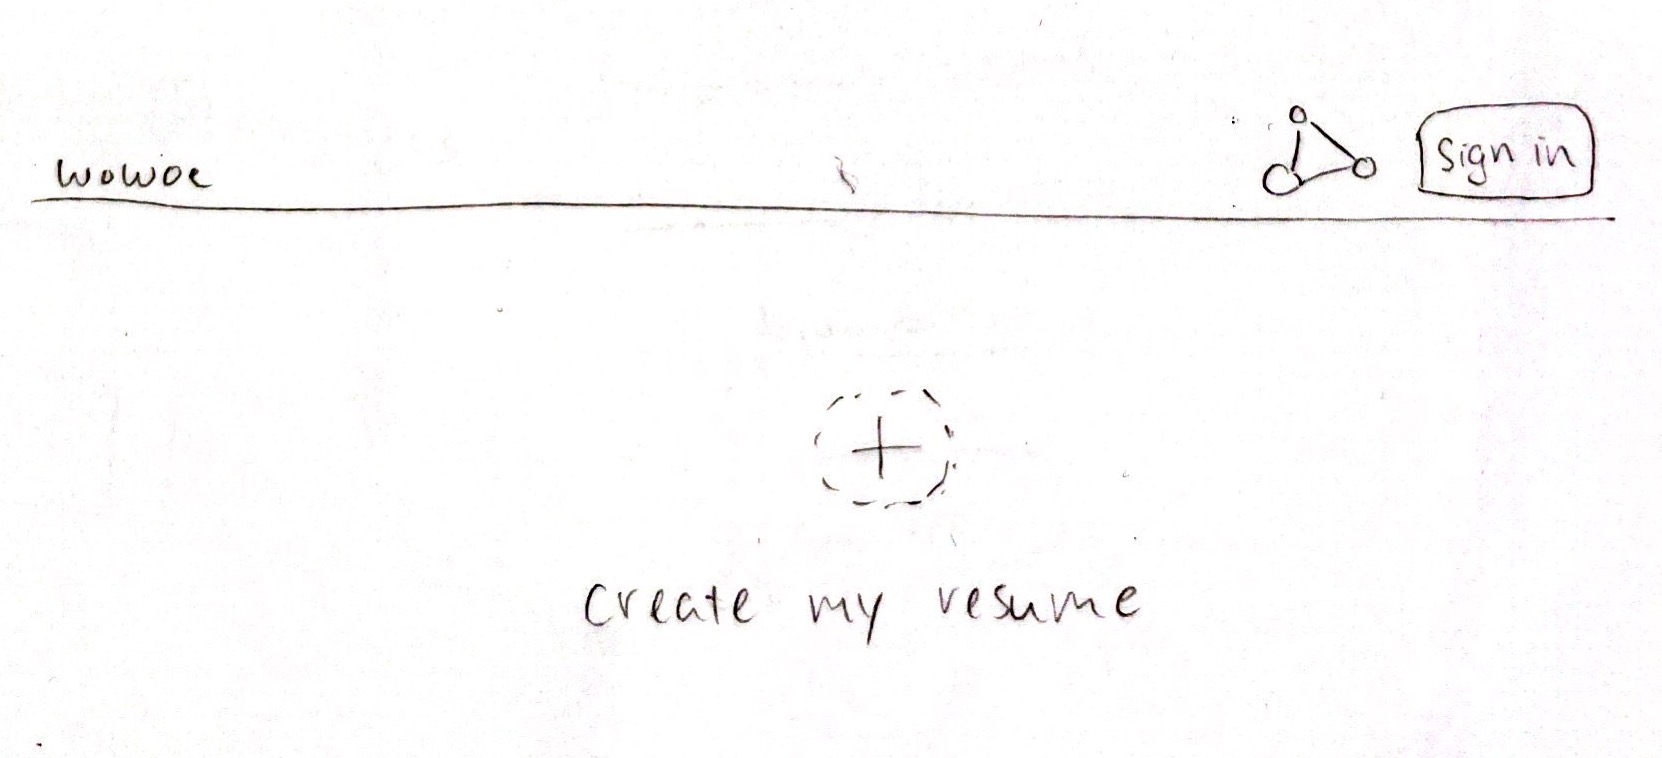 wowoe
Sign in
+
create my resume